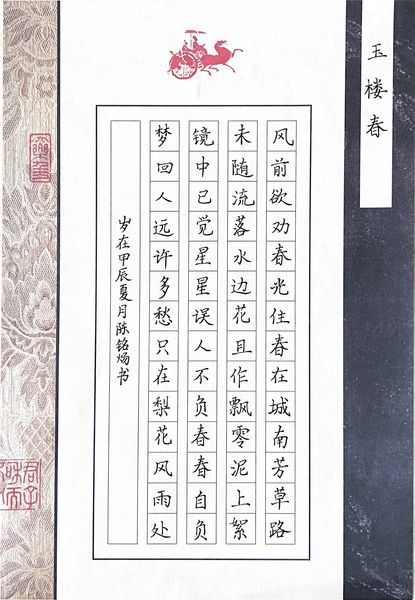 玉楼春
风前欲劝春光住春在城南芳草路
未随流落水边花且作飘零泥上絮
镜中已觉星星误人不负春春自负
梦回人远许多愁只在梨花风雨处
岁在甲辰夏月陈铭炀书